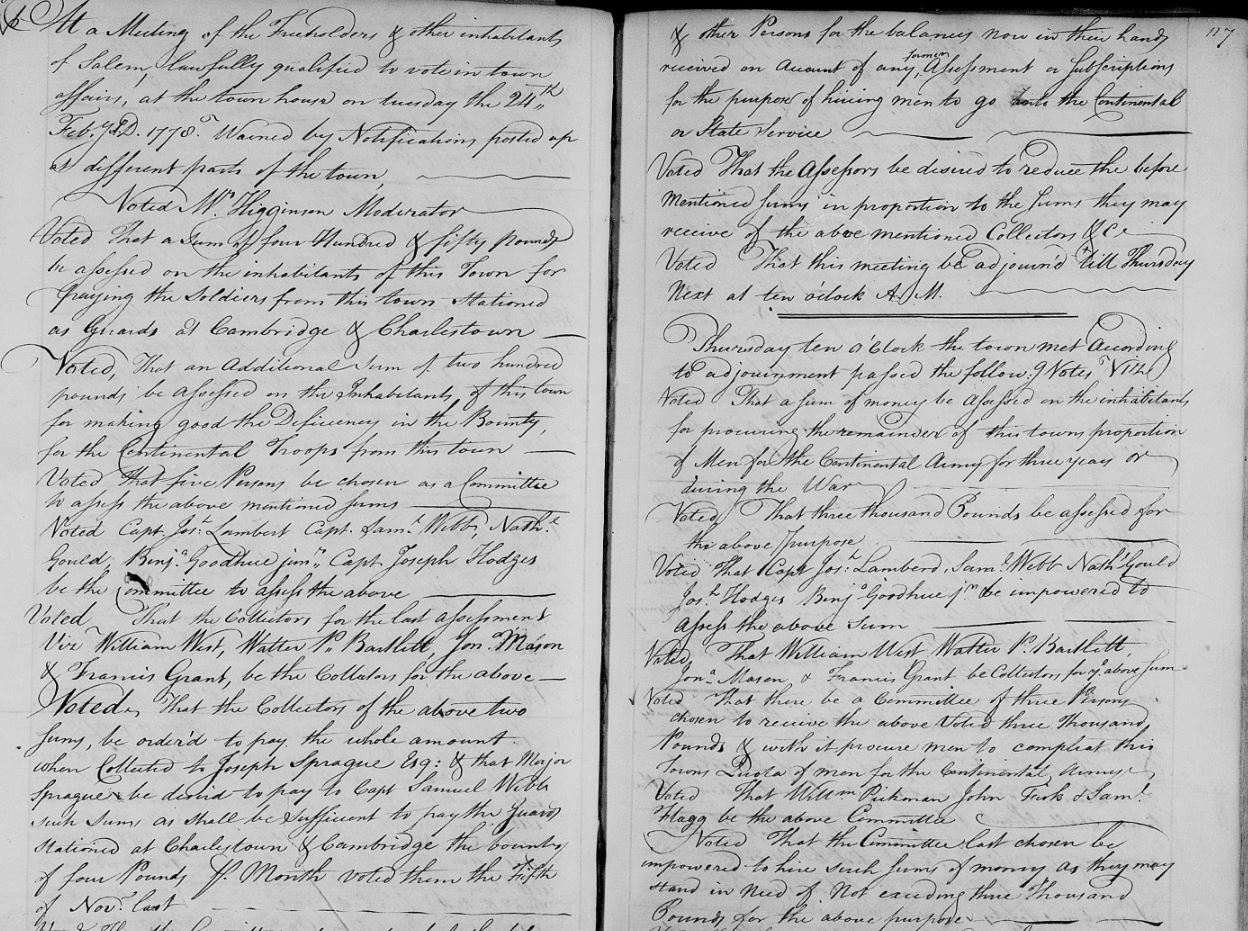 At a Meeting of the Freeholders & other inhabitants
of Salem, lawfully qualified to vote in town
affairs, at the town house on tuesday the 24th
Feby. A.D. 1778. Warned by Notifications posted up
at different parts of the town,
Voted Mr. Higginson Moderator
Voted That a Sum of four Hundred & fifty Pounds
be assessed on the inhabitants of this Town for
paying the Soldiers from this town Stationed
as Guards at Cambridge & Charlestown
Voted, That an Additional Sum of two hundred
pounds be Assessed on the Inhabitants, of this town
for making good the Deficiency in the Bounty,
for the Continental Troops from this town
Voted That five Persons be chosen as a Committee
to assess the above mentioned Sums
Voted Capt. Jos: Lambert Capt. Saml. Webb, Nathl.
Gould, Benja. Goodhue junr., Capt Joseph Hodges
be the Committee to assess the above
Voted That the Collectors for the last assessment
Vizt William West, Walter P. Bartlett, Jon. Mason
& Francis Grant, be the Collectors for the above
Voted, That the Collectors of the above two
Sums, be order'd to pay the whole amount
when Collected to Joseph Sprague Esq: & that Major
Sprague be desired to pay to Capt Samuel Webb
such Sums as shall be Sufficient to pay the Guards
Stationed at Charlestown & Cambridge the bounty
of four Pounds Pr. Month voted them the Fifth
of Novr. last
117
& other Persons for the balances now in their hands
received on Account of any former Assessment or Subscriptions
for the purpose of hiring men to go into the Continental
or State Service
Voted That the Assessors be desired to reduce the before
Mentioned Sums in proportion to the Sums they may
receive of the above mentioned Collectors &c
Voted That this meeting be adjourn'd till Thursday
Next at ten o'clock A. M.
Thursday ten o'Clock the town met According
to adjournment passed the follow:g Votes Vizt
Voted That a sum of money be Assessed on the inhabitants
for procuring the remainder of this towns proportion
of Men for the Continental Army for three years or
during the War
Voted, That three thousand Pounds be assessed for
the above purpose
Voted That Capt Jos: Lamberd, Saml. Webb Nathl Gould
Josh. Hodges Benj Goodhue jr be empowered to
assess the above Sum
Voted, That William West Walter P. Bartlett,
Jona. Mason, & Francis Grant be Collectors for ye above Sum
Voted That there be a Committee of three Persons
chosen to receive the above Voted three Thousand
Pounds & with it procure men to compleat this
Towns Quota of men for the Continental Army
Voted That Willm Pickman John Fisk & Saml.
Flagg be the above Committee
Voted That the Committee last chosen be
empowered to hire such Sums of money as they may
stand in Need of Not exceding three Thousand
Pounds for the above purpose